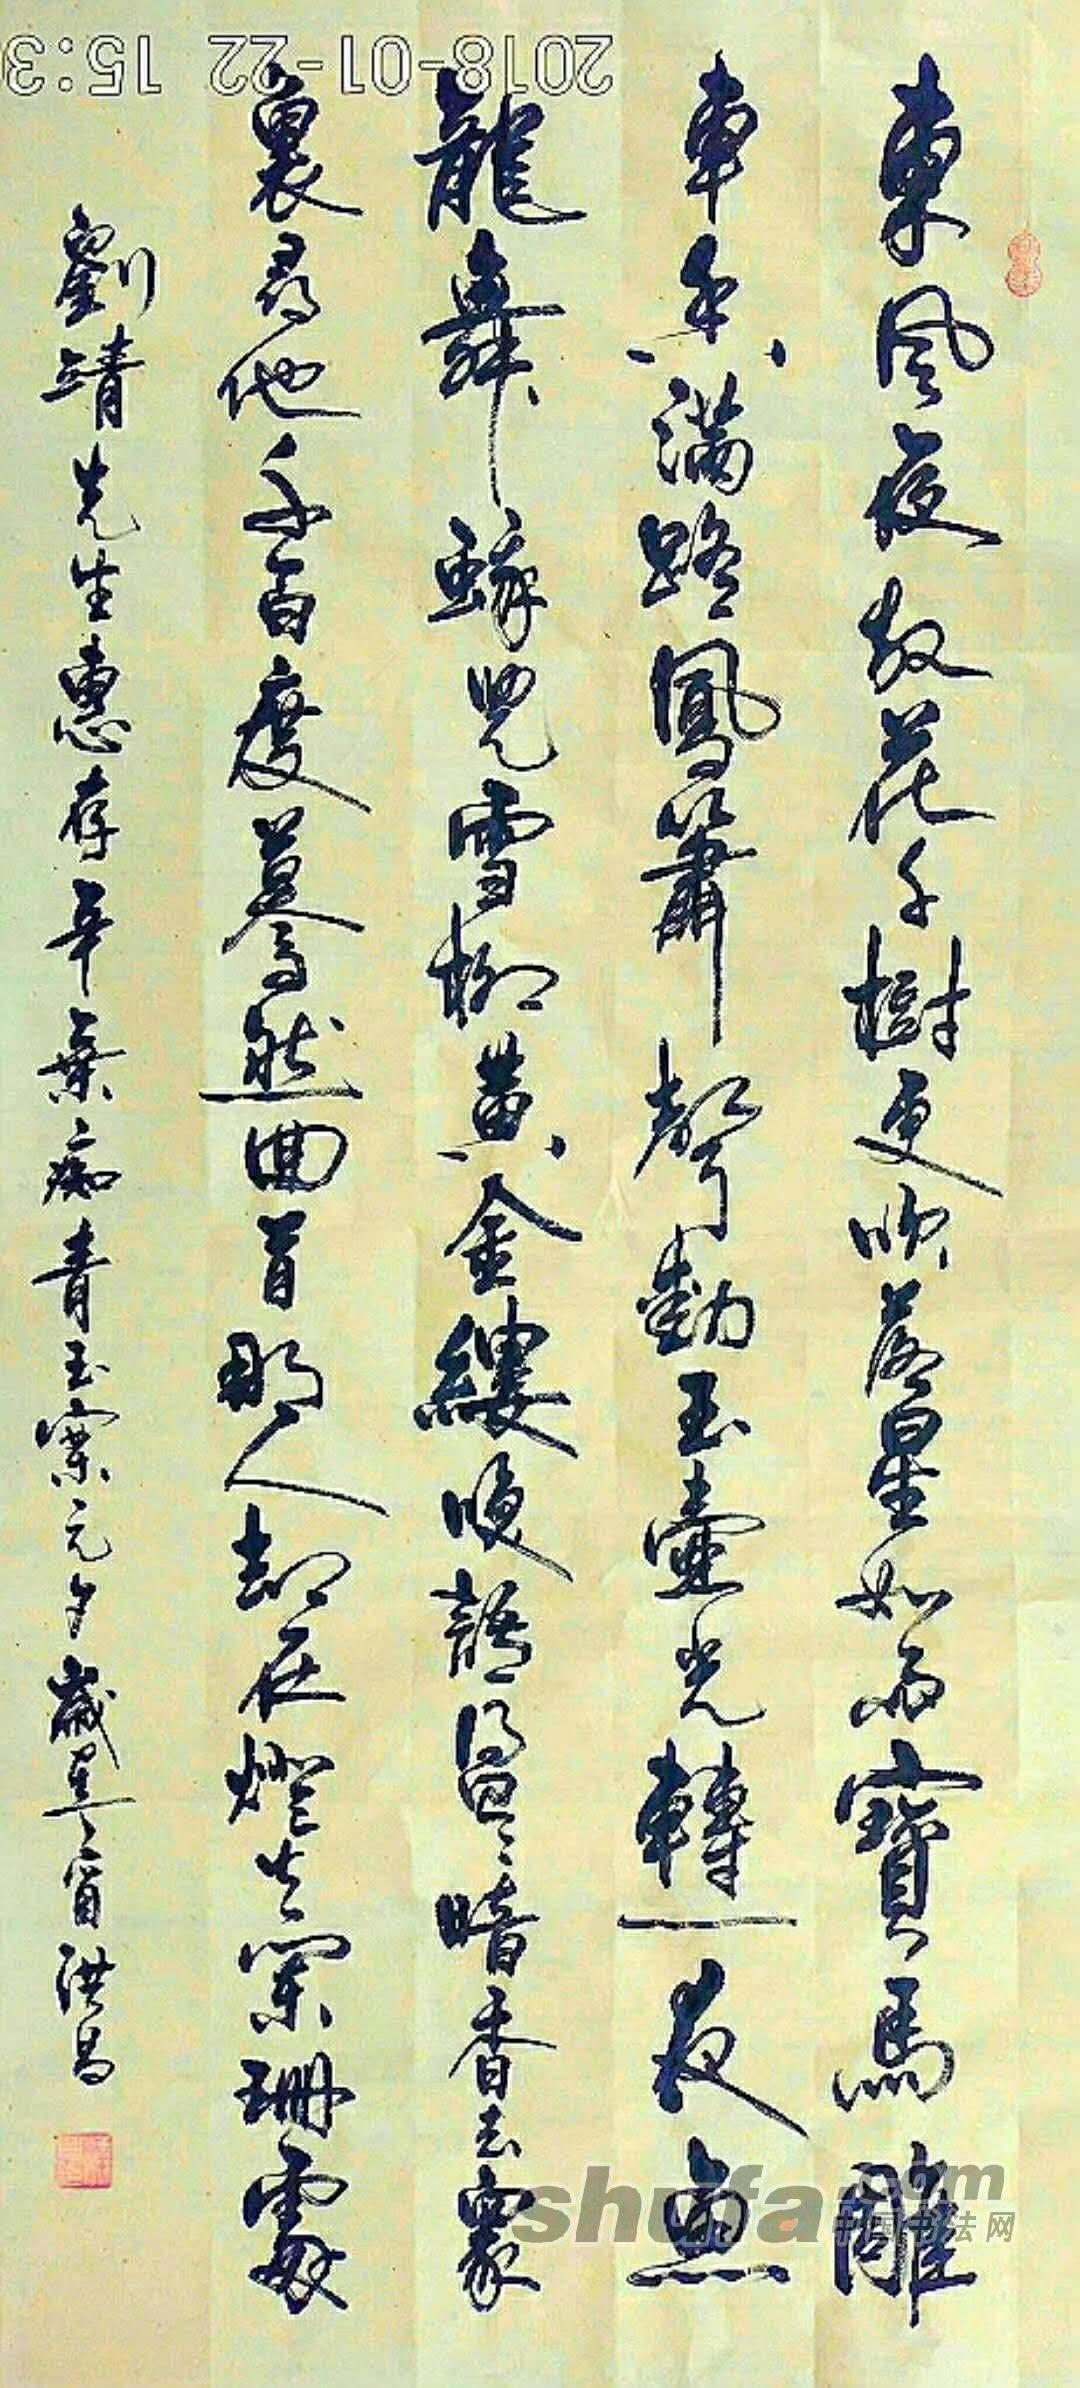 東風夜放花千樹更吹落星如雨寶馬雕
車香滿路鳳簫聲動玉壺光轉一夜魚
龍舞蛾兒雪柳黃金縷笑語盈盈暗香去衆
裏尋他千百度驀然回首那人却在燈火闌珊處
劉靖先生惠存辛棄疾青玉案元夕歲寒齋洪昌
2018-01-22 15:3
shufa.com
中国书法网